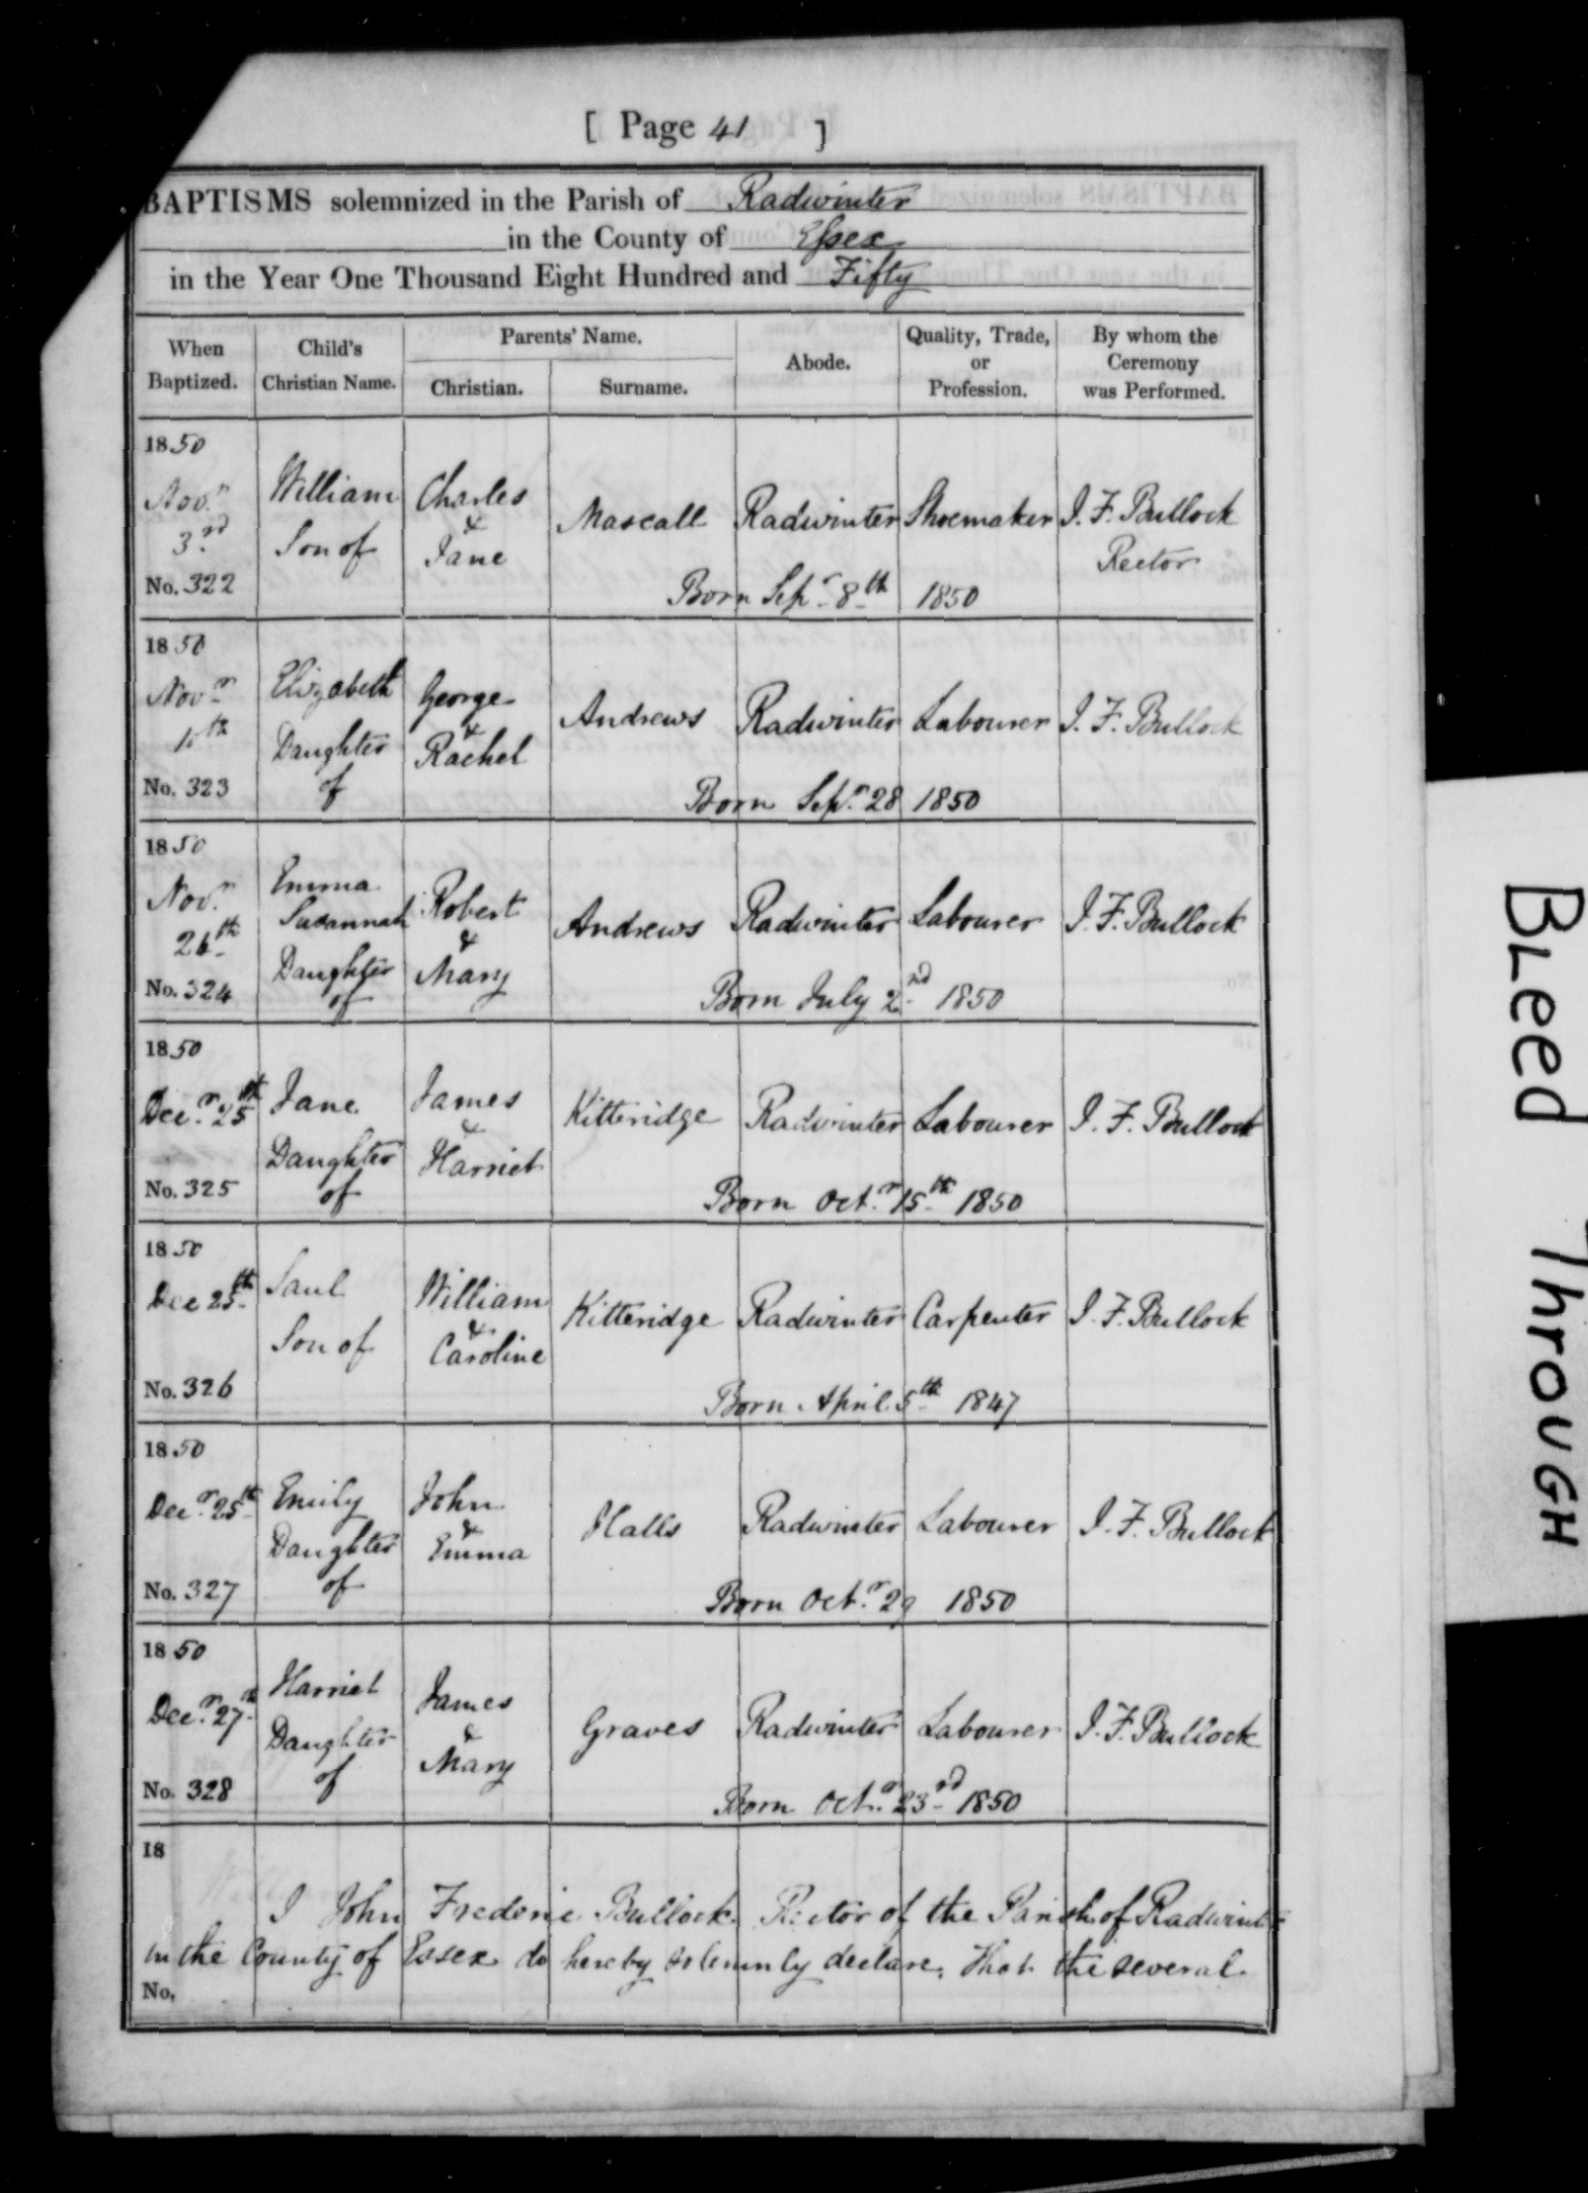 [ Page 41 ]
BAPTISMS solemnized in the Parish of Radwinter
in the County of Essex
in the Year One Thousand Eight Hundred and Fifty
When Baptized. Child's Christian Name. Parents' Name. Christian. Surname. Abode. Quality, Trade, or Profession. By whom the Ceremony was Performed.
1850
Novr 3rd
No. 322
William
Son of
Charles
&
Jane
Mascall
Radwinter
Shoemaker
J. F. Bullock
Rector
Born Sepr 8th 1850
1850
Novr
No. 323
Elizabeth
Daughter
of
George
&
Rachel
Andrews
Radwinter
Labourer
J. F. Bullock
Born Sepr 28 1850
1850
Novr
26th
No. 324
Emma
Susannah
Daughter
of
Robert
&
Mary
Andrews
Radwinter
Labourer
J. F. Bullock
Born July 2nd 1850
1850
Decr 25th
No. 325
Jane
Daughter
of
James
&
Harriet
Kitteridge
Radwinter
Labourer
J. F. Bullock
Born Octr 15th 1850
1850
Dec 25th
No. 326
Saul
Son of
William
&
Caroline
Kitteridge
Radwinter
Carpenter
J. F. Bullock
Born April 5th 1847
1850
Decr 25th
No. 327
Emily
Daughter
of
John
&
Emma
Halls
Radwinter
Labourer
J. F. Bullock
Born Octr 29 1850
1850
Decr 27th
No. 328
Harriet
Daughter
of
James
&
Mary
Graves
Radwinter
Labourer
J. F. Bullock
Born Octr 23rd 1850
18
I John Frederic Bullock Rector of the Parish of Radwinter
in the County of Essex do hereby solemnly declare, that the several
No.
BLeed ThrouGH